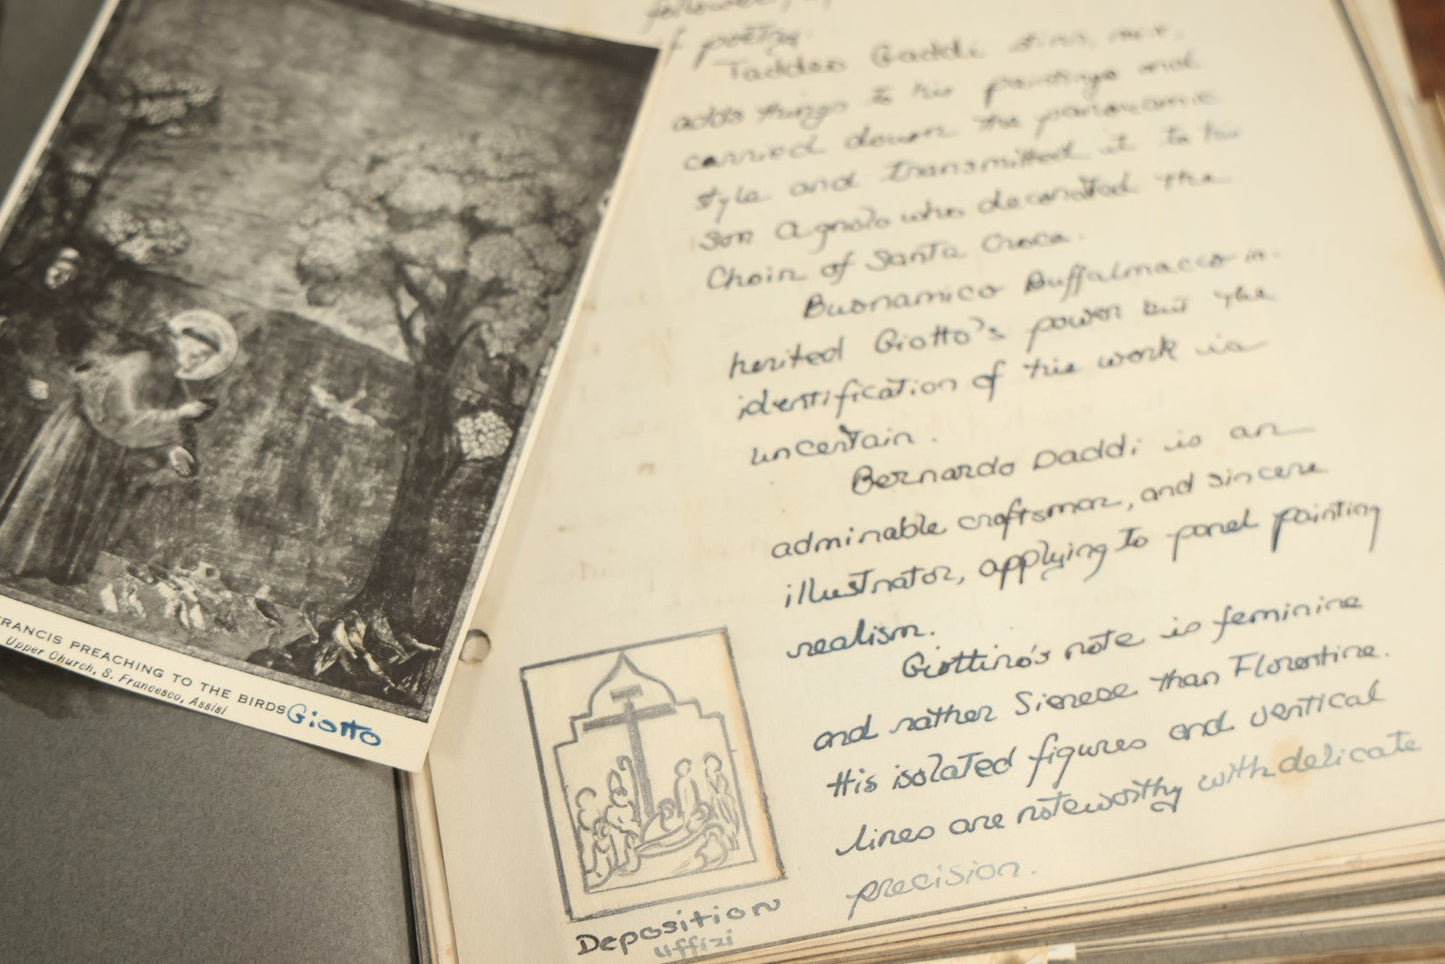 FRANCIS PREACHING TO THE BIRDS
Upper Church, S. Francesco, Assisi
Giotto
follower,
of poetry.
Taddeo Gaddi
adds things to his paintings and
carried down the panoramic
style and transmitted it to his
son Agnolo who decorated the
Choir of Santa Croce.
Buonamico Buffalmacco in-
herited Giotto's power but the
identification of his work is
uncertain.
Bernardo Daddi is an
admirable craftsman, and sincere
illustrator, applying to panel painting
realism.
Giottino's note is feminine
and rather Sienese than Florentine.
His isolated figures and vertical
lines are noteworthy with delicate
precision.
Deposition
Uffizi